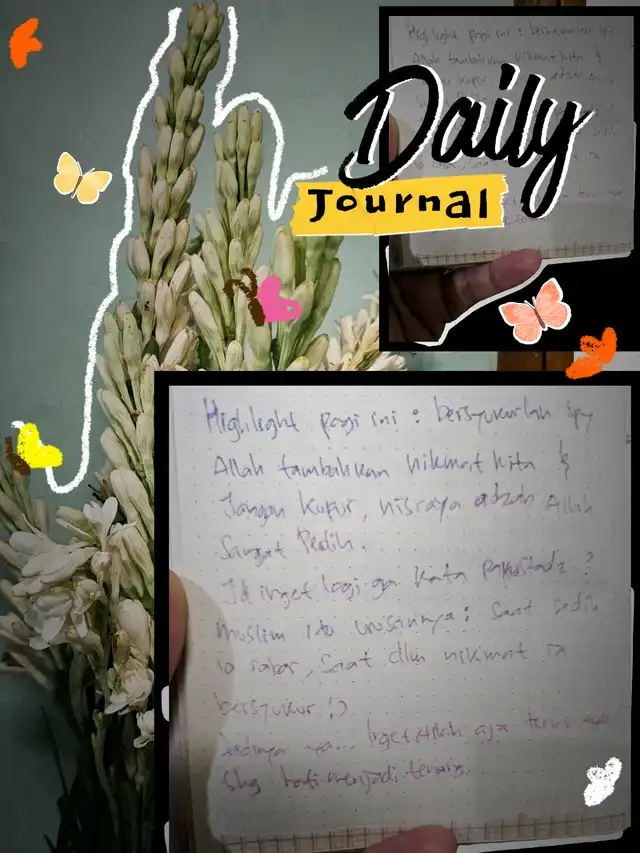 Daily
Journal
Highlight pagi ini : bersyukurlah spy
Allah tambahkan nikmat kita &
Jangan kufur, niscaya adzab Allah
Sangat Pedih.
Jd inget lagi ga kata pak ustadz ?
muslim itu urusannya : saat sedih
ia sabar, saat dlm nikmat ia
bersyukur :)
Jadinya ya... Inget Allah aja terus
Shg hati menjadi tenang.